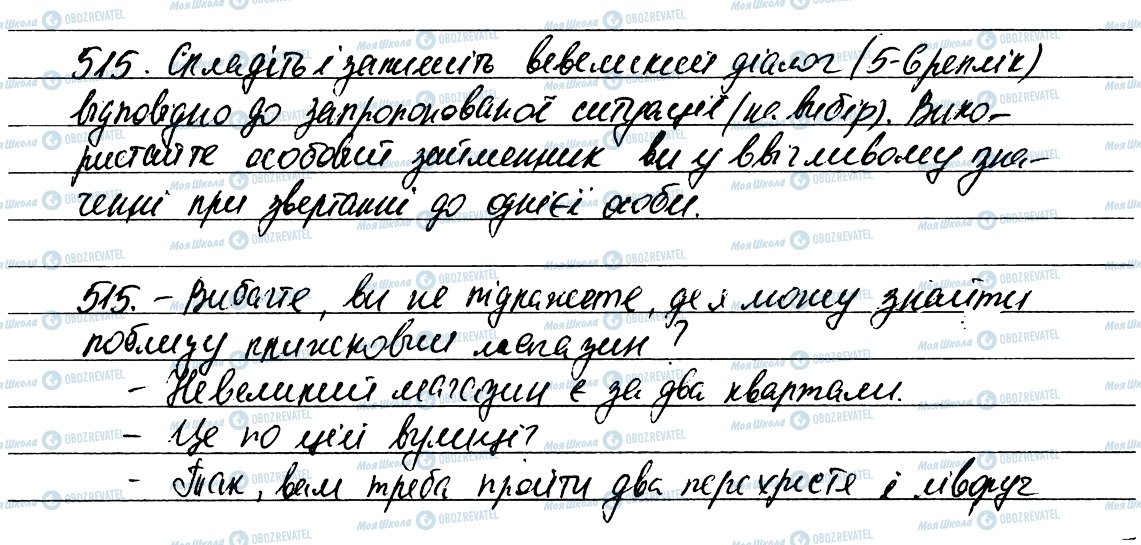 515. Складіть і запишіть вевеликий діалог (5-6 реплік)
відповідно до запропонованої ситуації (на вибір). Вико-
ристайте особовий займенник ви у ввічливому зна-
ченні при звертанні до однієї особи.
515. - Вибачте, ви не підкажете, де я можу знайти
поблизу книжковий магазин?
- Невеликий магазин є за два квартали.
- Це по цій вулиці?
- Так, вам треба пройти два перехрестя і ліворуч